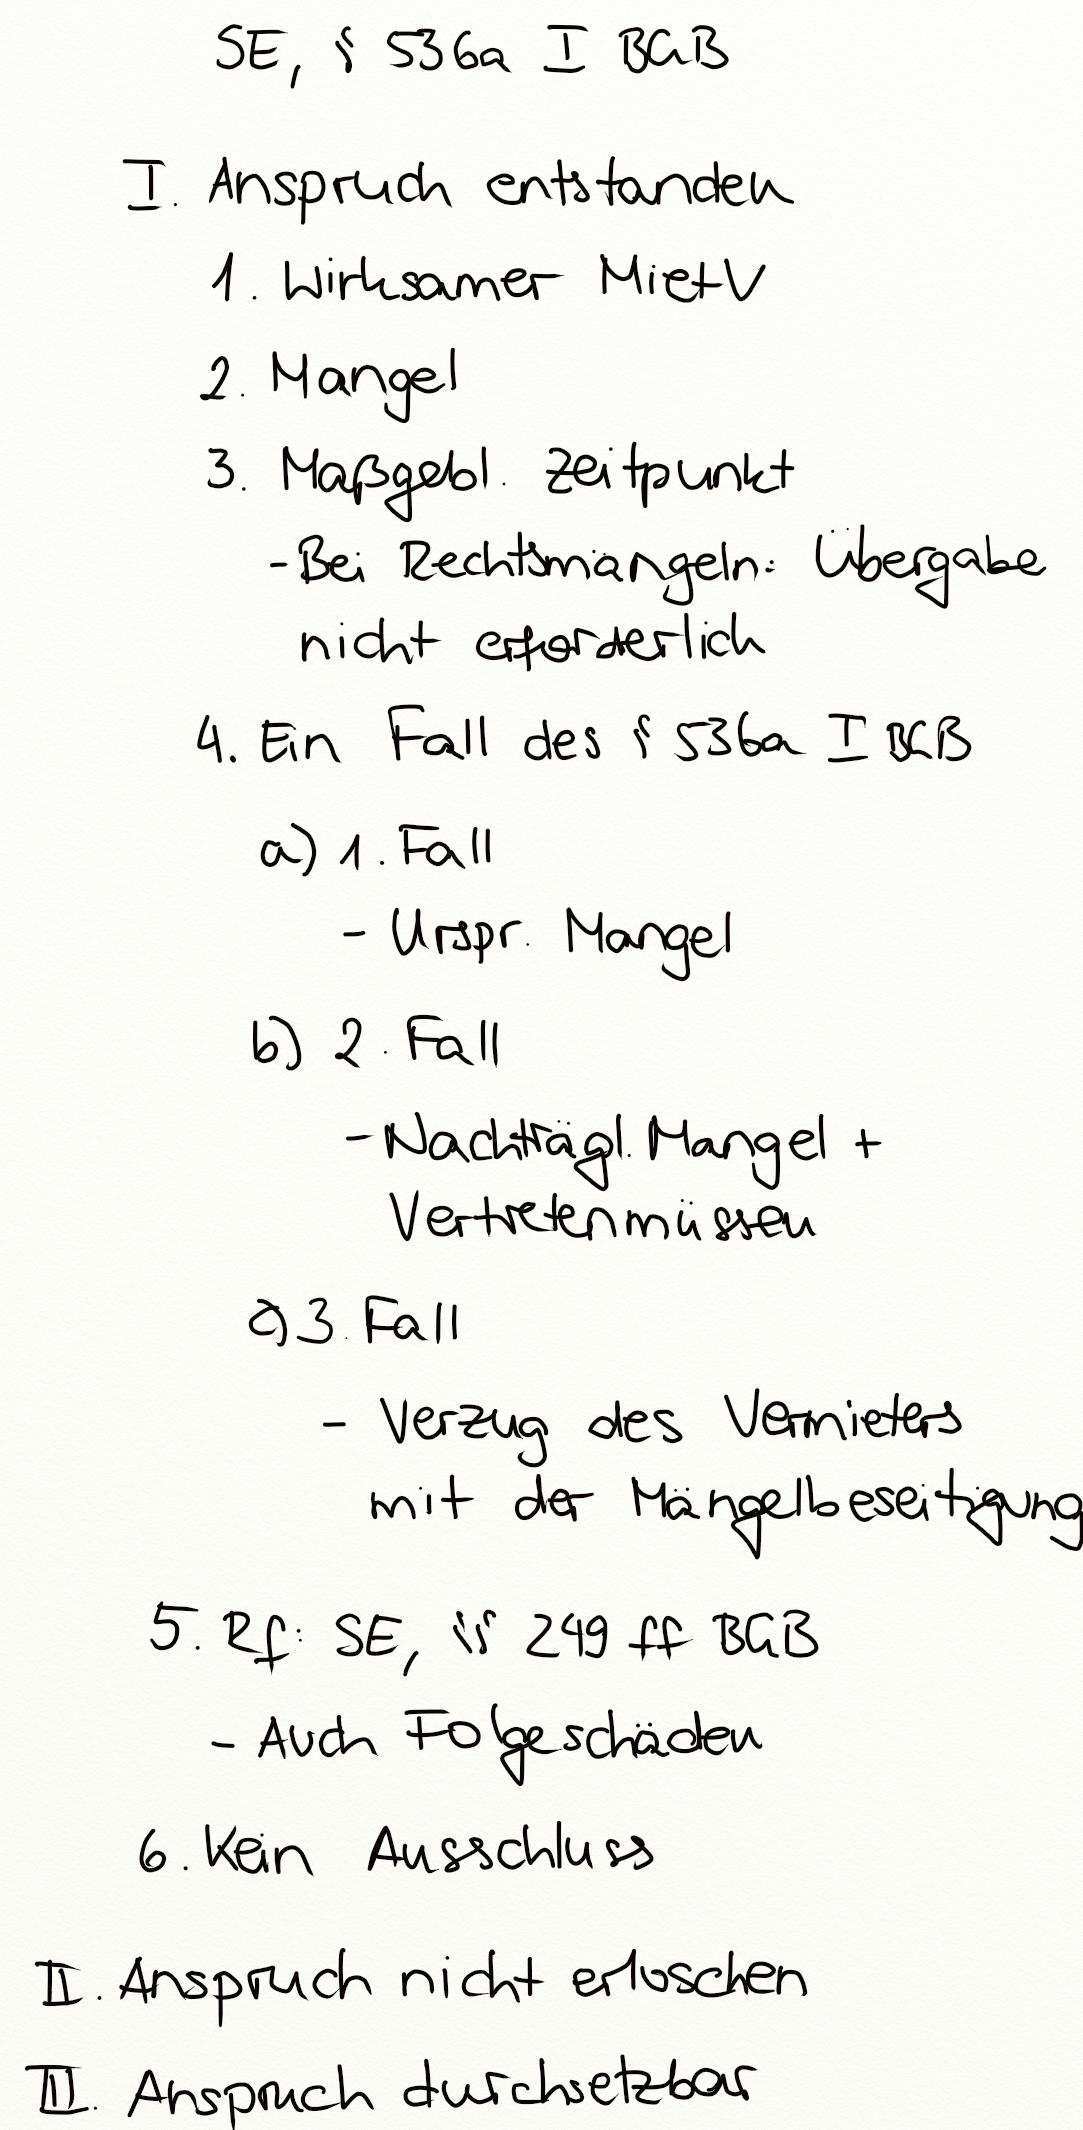 SE, § 536a I BGB
I. Anspruch entstanden
1. Wirksamer MietV
2. Mangel
3. Maßgebl. Zeitpunkt
- Bei Rechtsmängeln: Übergabe
nicht erforderlich
4. Ein Fall des § 536a I BGB
a) 1. Fall
- Urspr. Mangel
b) 2. Fall
- Nachträgl. Mangel +
Vertretenmüssen
c) 3. Fall
- Verzug des Vermieters
mit der Mängelbeseitigung
5. Rf: SE, §§ 249 ff BGB
- Auch Folgeschäden
6. Kein Ausschluss
II. Anspruch nicht erloschen
III. Anspruch durchsetzbar